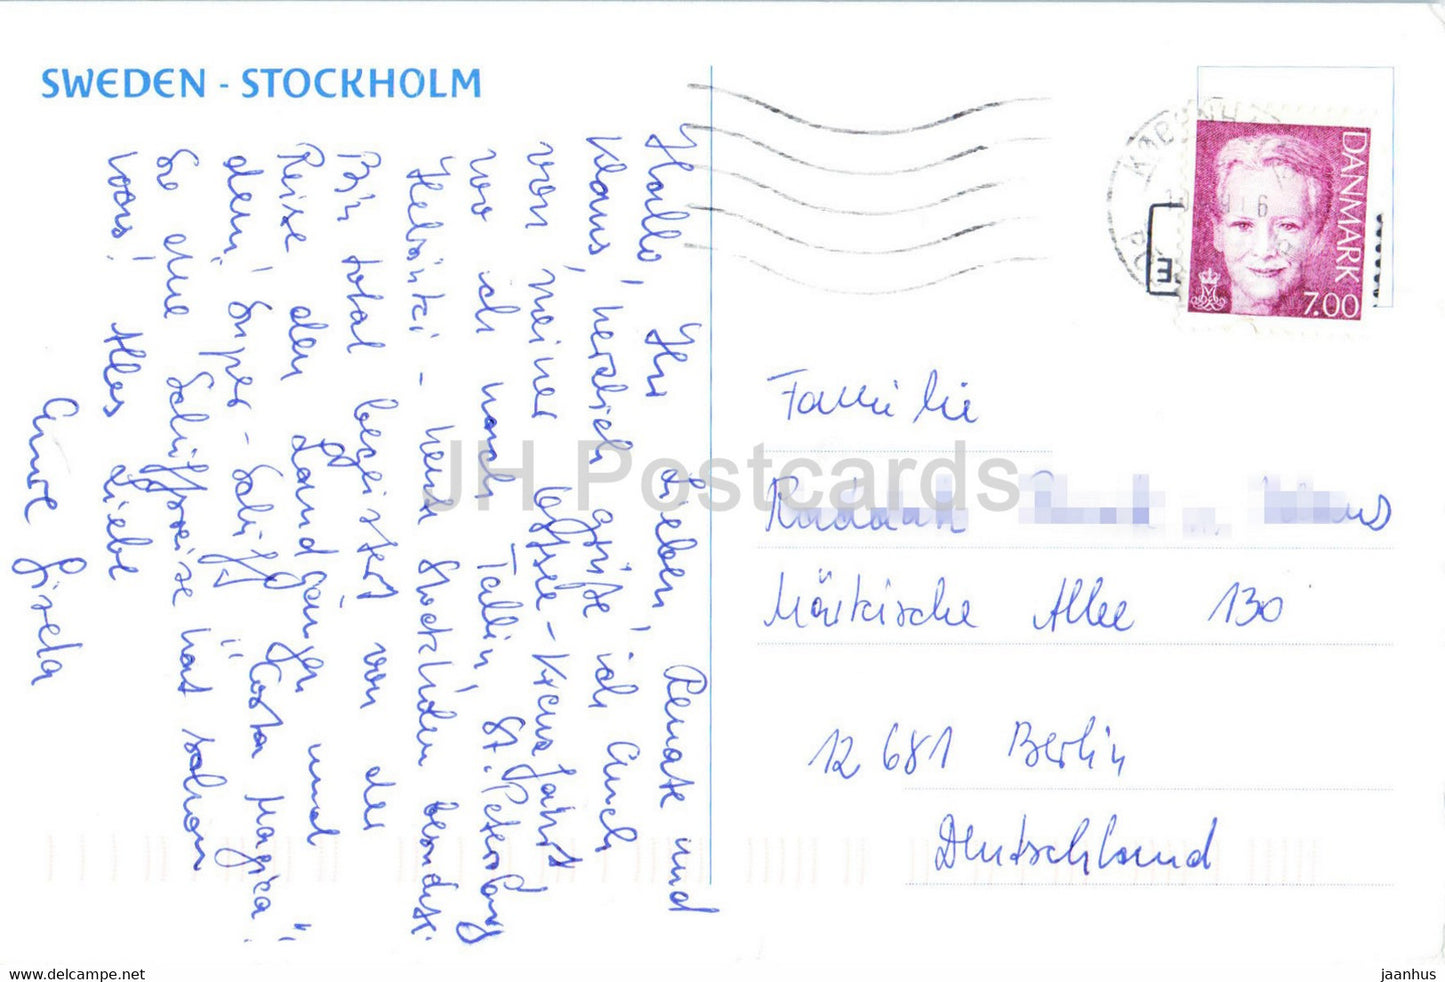 SWEDEN - STOCKHOLM
Hallo, Ihr Lieben, Renate und
Klaus, herzlich grüße ich Euch
von meiner Ostsee-Kreuzfahrt,
wo ich nach Tallin, St. Petersburg
Helsinki - heute Stockholm besuchte.
Bin total begeistert von der
Reise, den Landgängen und
dem Super-Schiff "Costa Magica".
So eine Schiffsreise hat schon
was! Alles Liebe
Eure Gisela
KØBENH
DANMARK
7.00
Familie
Märkische Allee 130
12681 Berlin
Deutschland
JH Postcards
www.delcampe.net
jaanhus